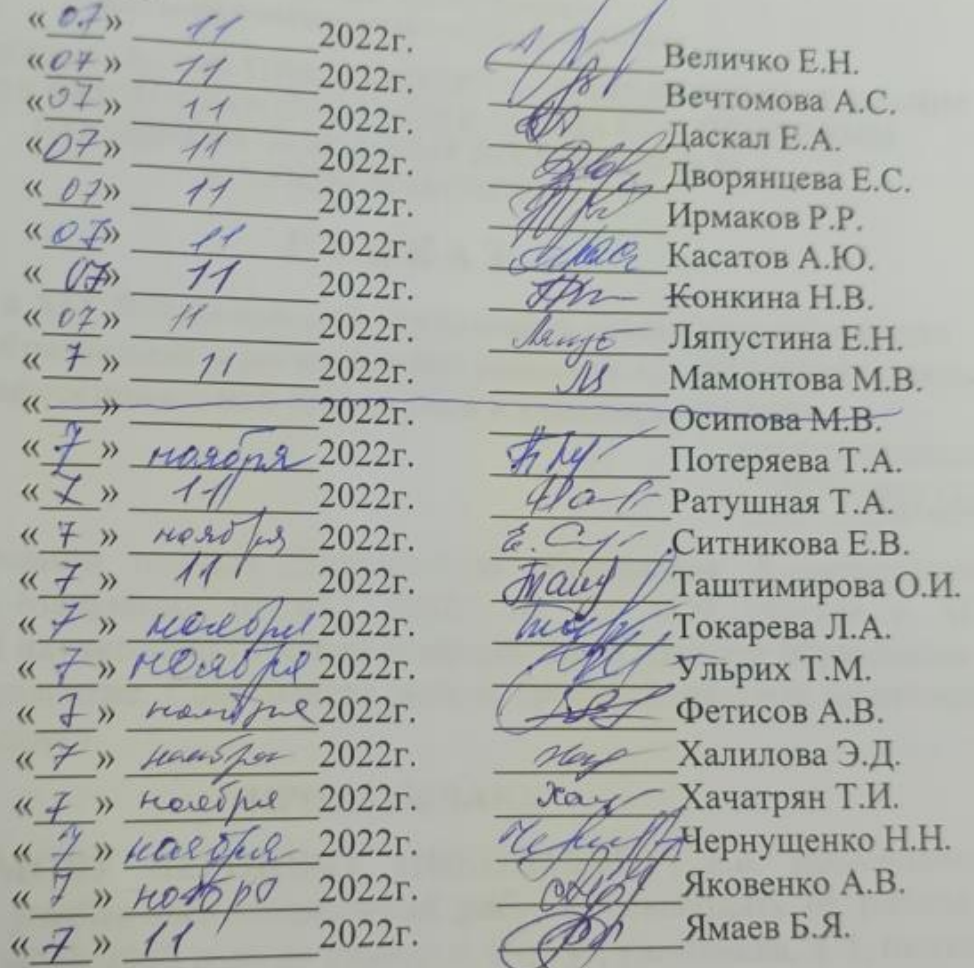 « 07 » 11 2022г. Величко Е.Н.
« 07 » 11 2022г. Вечтомова А.С.
« 07 » 11 2022г. Даскал Е.А.
« 07 » 11 2022г. Дворянцева Е.С.
« 07 » 11 2022г. Ирмаков Р.Р.
« 07 » 11 2022г. Касатов А.Ю.
« 07 » 11 2022г. Конкина Н.В.
« 07 » 11 2022г. Ляпустина Е.Н.
« 7 » 11 2022г. Мамонтова М.В.
« » 2022г. Осипова М.В.
« 7 » ноября 2022г. Потеряева Т.А.
« 7 » 11 2022г. Ратушная Т.А.
« 7 » ноября 2022г. Ситникова Е.В.
« 7 » 11 2022г. Таштимирова О.И.
« 7 » ноября 2022г. Токарева Л.А.
« 7 » ноября 2022г. Ульрих Т.М.
« 7 » ноября 2022г. Фетисов А.В.
« 7 » ноября 2022г. Халилова Э.Д.
« 7 » ноября 2022г. Хачатрян Т.И.
« 7 » ноября 2022г. Чернущенко Н.Н.
« 7 » ноября 2022г. Яковенко А.В.
« 7 » 11 2022г. Ямаев Б.Я.